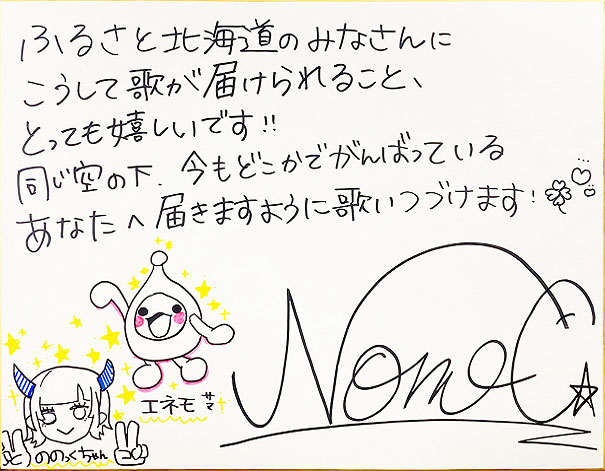 ふるさと北海道のみなさんに
こうして歌が届けられること、
とっても嬉しいです!!
同じ空の下、今もどこかでがんばっている
あなたへ届きますように歌いつづけます!
エネモサマ
ののっくちゃん
NonoC